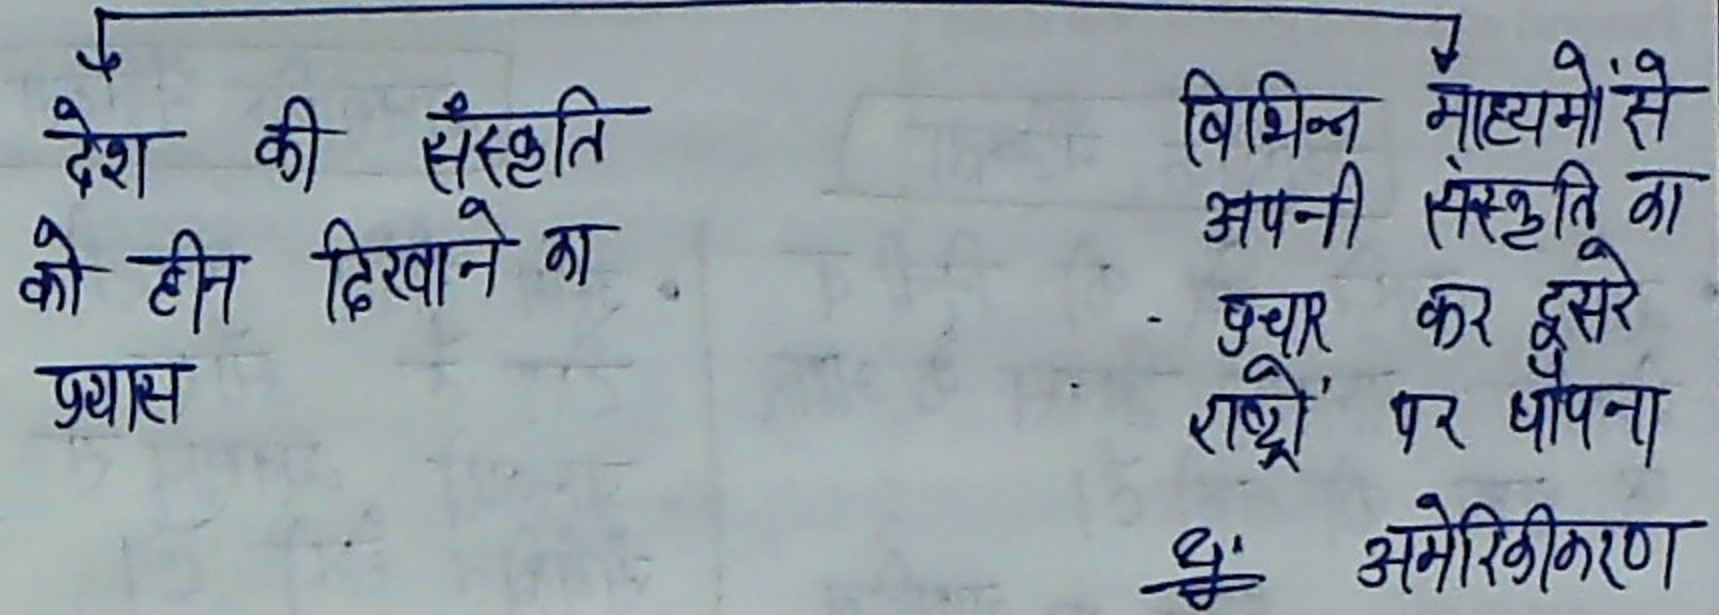 देश की संस्कृति
को हीन दिखाने का
प्रयास
विभिन्न माध्यमों से
अपनी संस्कृति का
प्रचार कर दूसरे
राष्ट्रों पर थोपना
अमेरिकीकरण